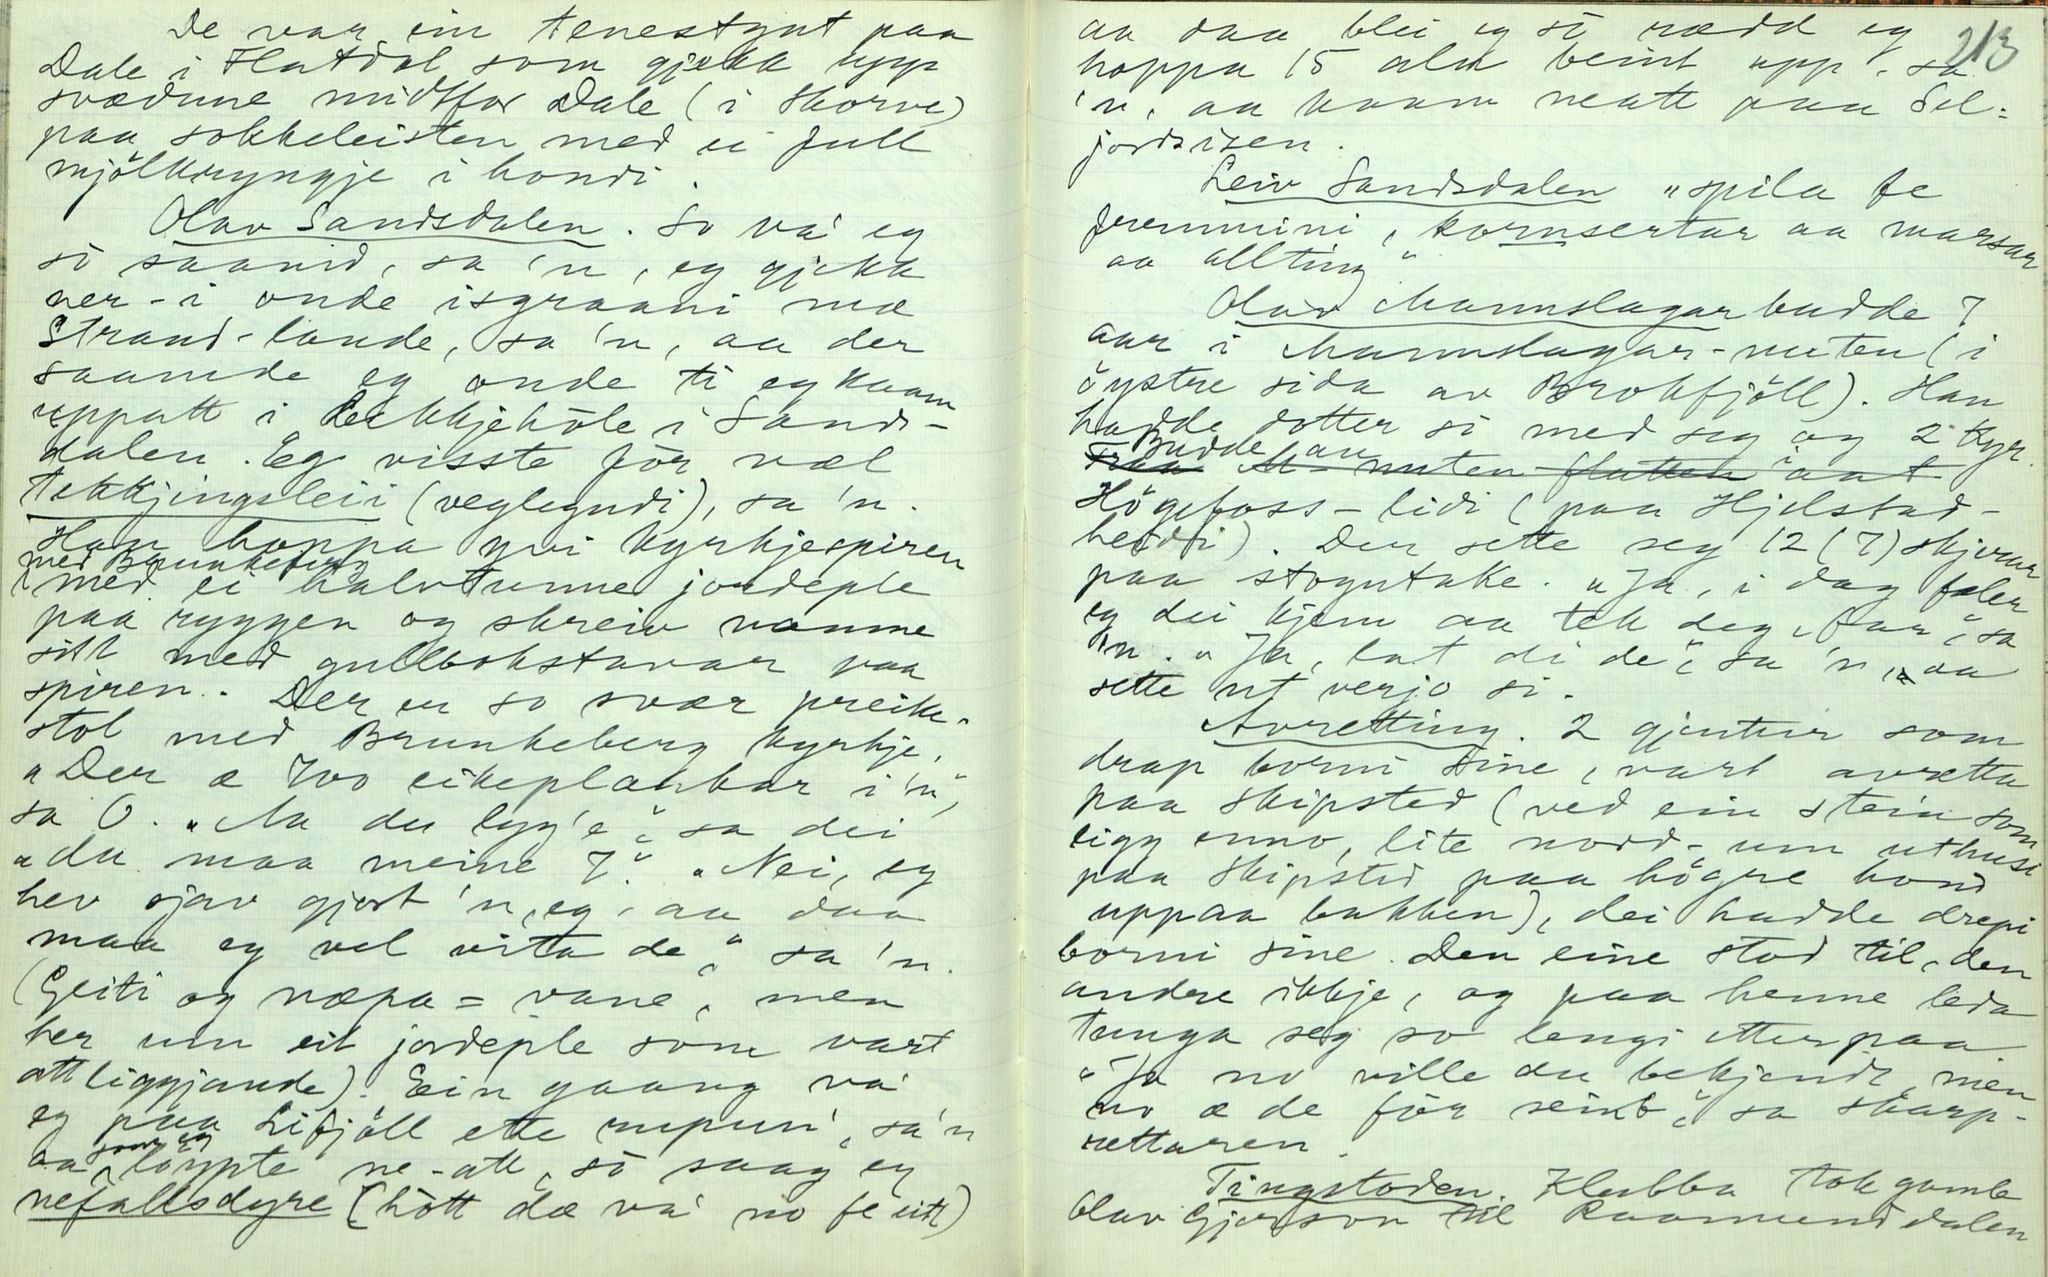 De var ein tenestgut paa
Dale i Flatdal som gjekk upp
svædune midtfor Dale (i Skorve)
paa sokkeleisten med ei full
mjölkryngje i hondi.
Olav Sandsdalen. So va' eg
så saamd, sa 'n, eg gjekk
ner-i onde isgraani mæ
Strand-lande, sa 'n, aa der
saamde eg onde ti eg kaam
uppatt i Lekkjehöle i Sands-
dalen. Eg visste för væl
tekkjingsleii (veglegndi), sa 'n.
Han hoppa yvi kyrkjespiren
med Brunkeberg
med ei halvtunne jordeple
paa ryggen og skreiv namne
sitt med gullbokstavar paa
spiren. Der er so svær preike-
stol med Brunkeberg kyrkje.
"Der æ 700 eikeplankar i 'n",
sa O. "Na du lyg'e", sa dei
"du maa meine 7". "Nei, eg
hev sjav gjort 'n, eg, aa daa
maa eg vel vita de", sa 'n.
(Geiti og næpa = vane, men
her um eit jordeple som vart
attliggjande). Ein gaang va'
eg paa Lifjöll ette rupun', sa'n
som eg
aa löypte ne-att, så saag eg
nefallsdyre (hått dæ va' no fe eitt)
213
aa daa blei eg så rædd eg
hoppa 15 aln beint upp, sa
'n, aa kaam neatt paa Sel=
jordsisen.
Leiv Sandsdalen "spila fe
fremmini, kornsertar aa marsar
aa allting"
Olav Mannslagar budde 7
aar i Mannslagar-nuten (i
öystre sida av Brokfjöll). Han
hadde dotter si med seg og 2 kyr.
Budde au i
Fraa M-nuten flutten aat
Högefoss-lidi (paa Hjelstad-
heidi). Der sette seg 12 (7) skjerar
paa stogutake. "Ja, i dag fæler
eg dei kjem aa tek deg, far", sa
'n. "Ja, lat di de", sa 'n, aa
sette ut verjo si.
Avretting. 2 gjentur som
drap borni sine, vart avretta
paa Skipsted (ved ein stein som
ligg enno, lite nord-um uthusi
paa Skipsted paa högre hond
uppaa bakken), dei hadde drepi
borni sine. Den eine stod til, den
andre ikkje, og paa henne leda
tunga seg so lengi etterpaa.
"Ja no ville du bekjende, men
no æ de för seint", sa skarp-
rettaren.
Tingstoden. Klubba tok gamle
Olav Gjerson til Raamunddalen